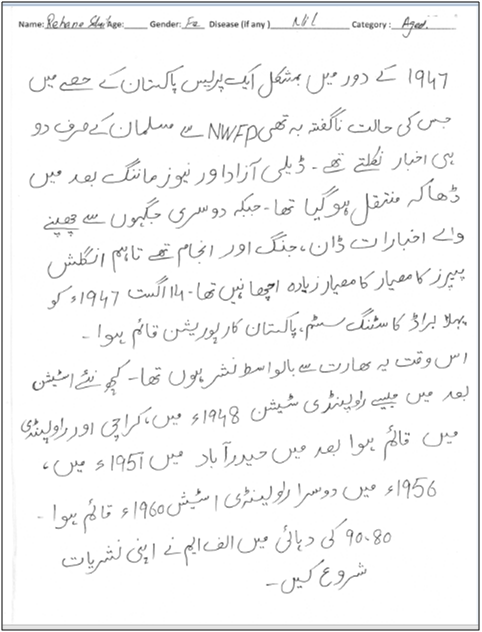 Name: Rehana Age: Gender: Fe Disease (if any) Nil Category: Aged.
1947 کے دور میں بمشکل ایک پریس پاکستان کے حصے میں
جس کی حالت ناگفتہ بہ تھی NWFP سے مسلمان کے صرف دو
ہی اخبار نکلتے تھے۔ ڈیلی آزاد اور نیوز مارننگ بعد میں
ڈھاکہ منتقل ہو گیا تھا۔ جبکہ دوسری جگہوں سے چھپنے
والے اخبارات ڈان، جنگ اور انجام تھے تاہم انگلش
پیپرز کا معیار کا معیار زیادہ اچھا نہیں تھا۔ 14 اگست 1947ء کو
پہلا براڈ کاسٹنگ سسٹم، پاکستان کارپوریشن قائم ہوا۔
اس وقت یہ بھارت سے بالواسط نشر ہوں تھا۔ کچھ نئے اسٹیشن
بعد میں جیسے راولپنڈی سٹیشن 1948ء میں، کراچی اور راولپنڈی
میں قائم ہوا بعد میں حیدرآباد میں 1951ء میں،
1956ء میں دوسرا راولپنڈی اسٹیش 1960ء قائم ہوا۔
90-80 کی دہائی میں الف ایم نے اپنی نشریات
شروع کیں۔